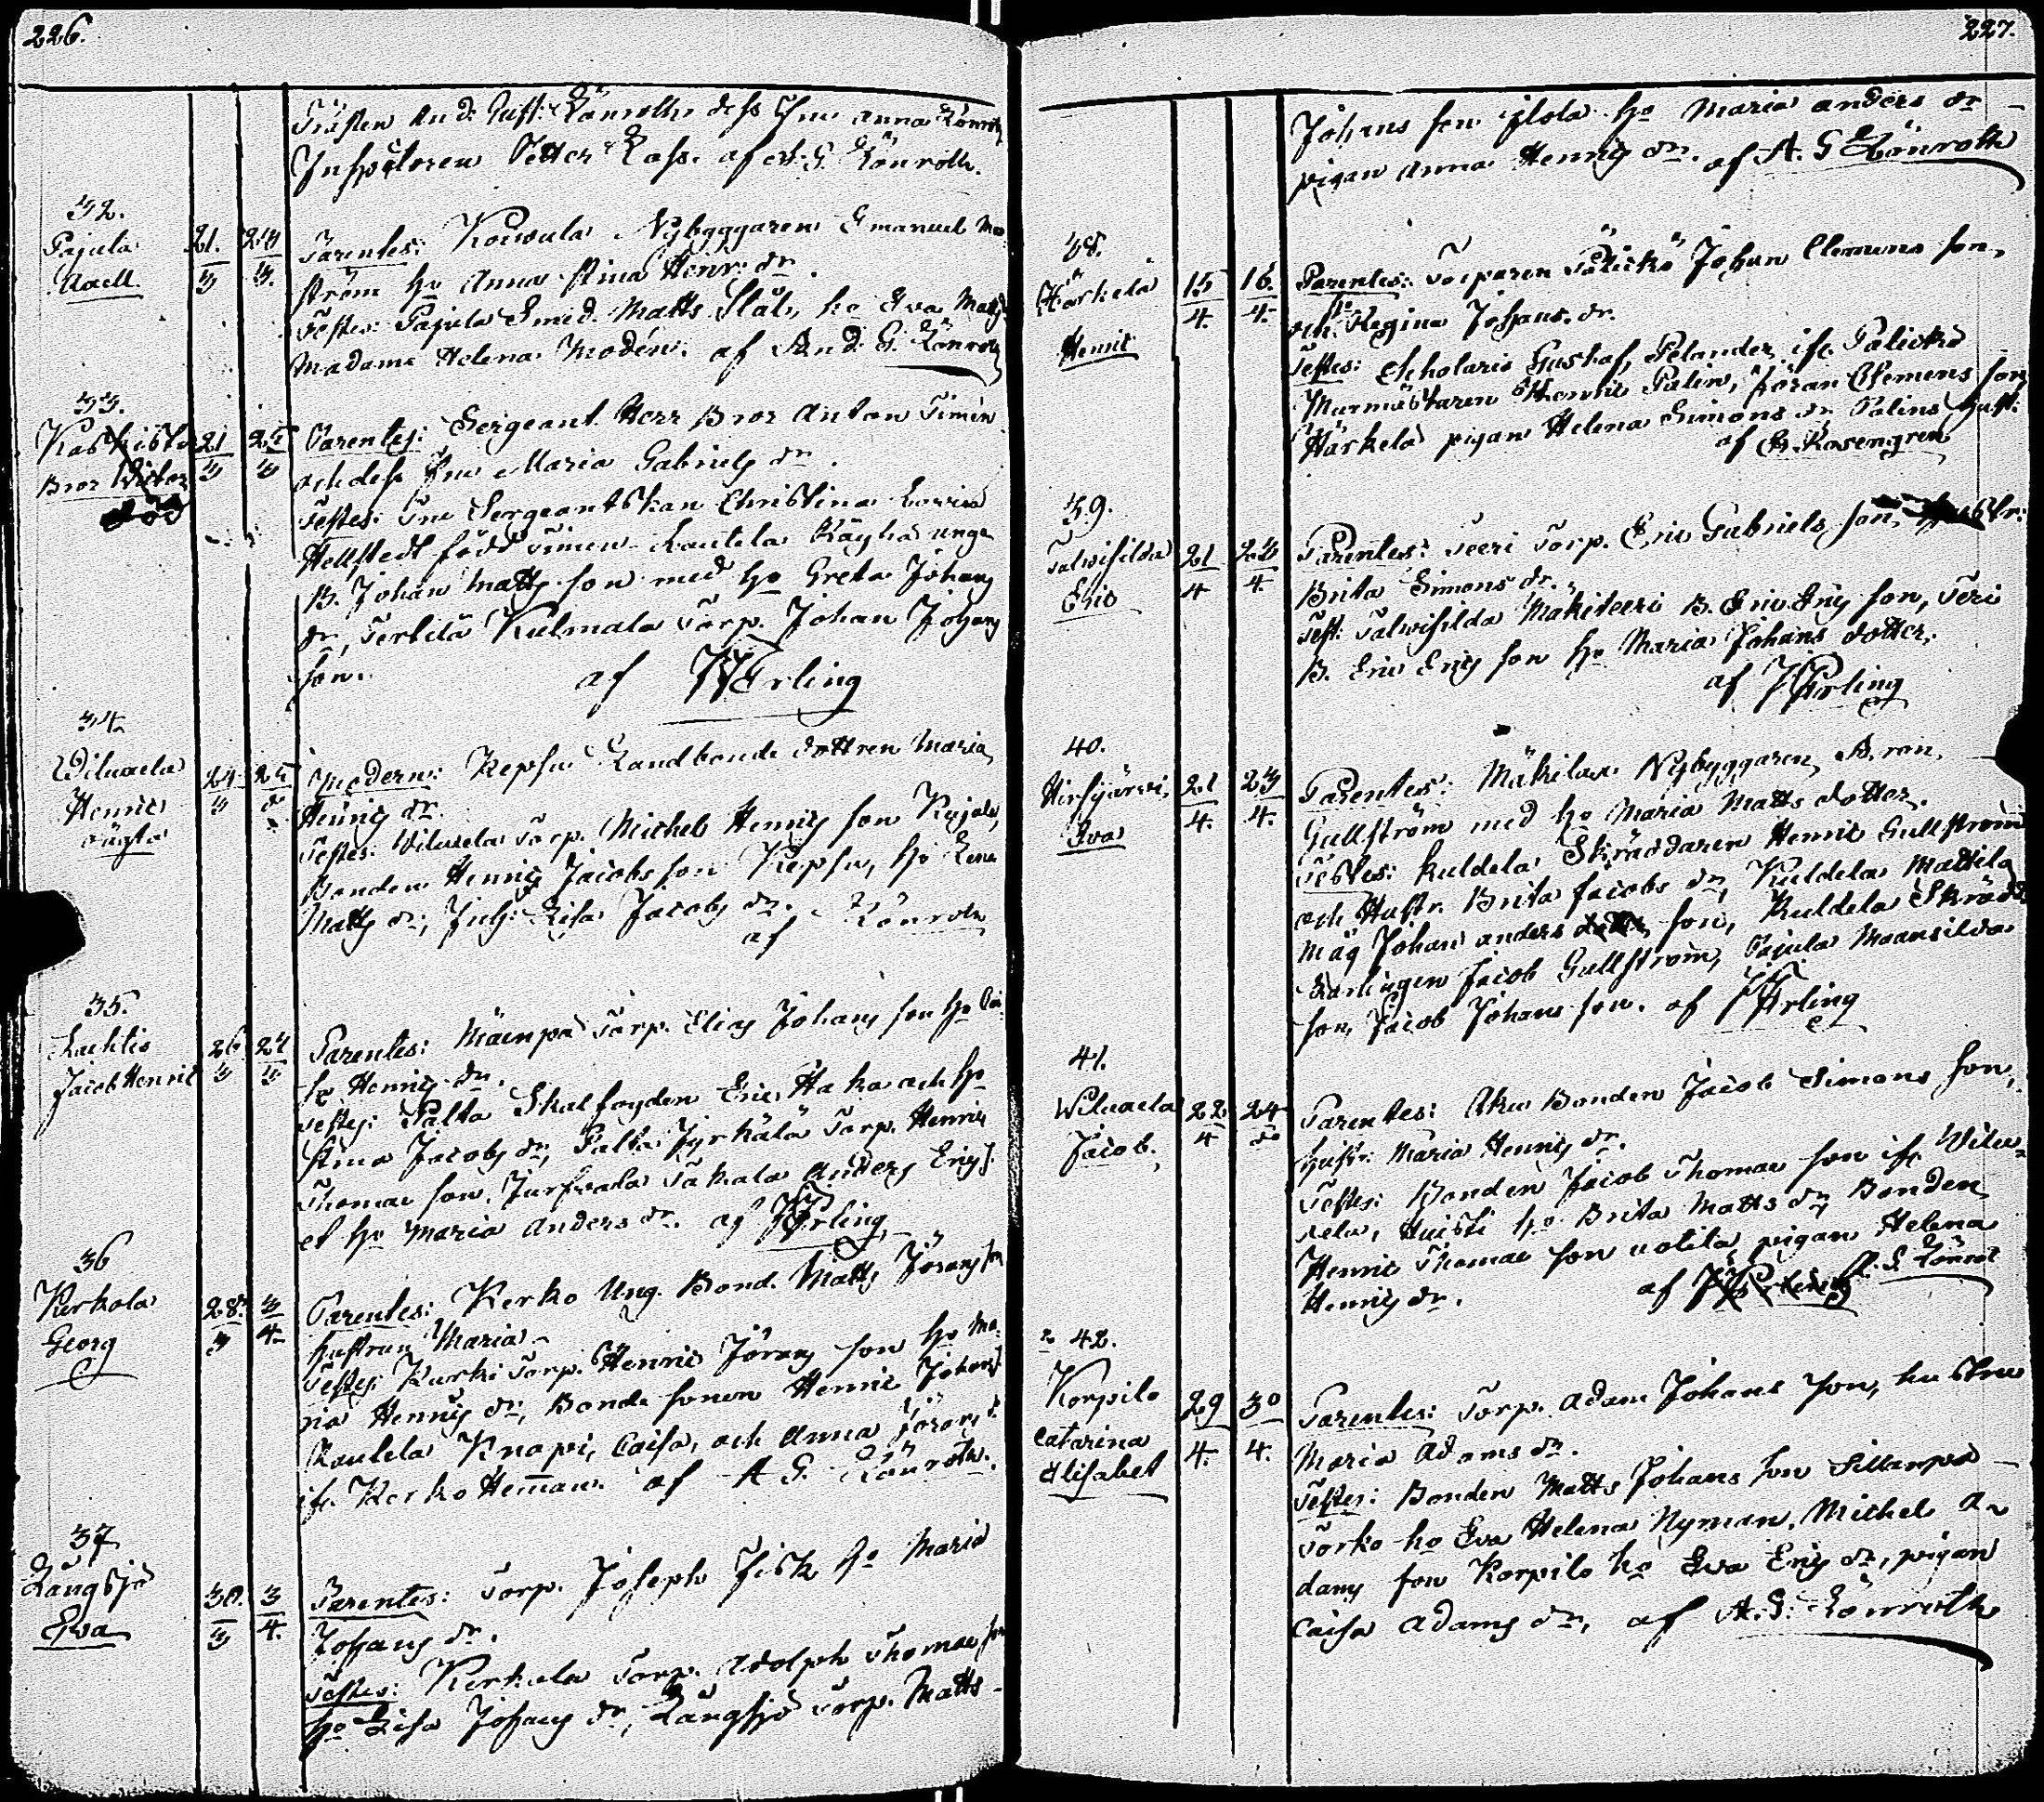 226.
And: Gust: Lönroth, dess fru Anna Lönroth
Inspectoren Petter Lass. af A. G. Lönroth.
32.
Pajula
21. 23
3 3.
Parentes: Koiwula Nybyggaren Emanuel Mo-
ström ho Anna Stina Henr: dr.
Testes: Pajula Smed. Matts Stål, ho Eva Matts
Madame Helena Modén. af And. G. Lönroth
33.
Bror Victor
död
21 25
3 3
Parentes: Sergeant Herr Bror Anton Timén
och dess fru Maria Gabriels dr
Testes: Fru Sergeantskan Christina Lovisa
Hellstedt född Timén Rautela Käyhä unge
B. Johan Matts son med ho Greta Johans
dr, Terttilä Kulmala Torp. Johan Johans
son.
af Erling
34.
Henric
oägta
24 25
3
Modern: Kepsu Landbonde dottren Maria
Henrics dr
Testes: Torp. Michel Henrics son
Bonden Henric Jacobs son Kepsu, ho Lena
Matts dr, Lisa Jacobs dr.
af Lönroth
35.
Lachtis
Jacob Henric
26 27
3 3
Parentes: Mäenpä Torp. Elias Johans son ho
Henrics dr.
Testes: Palta Skalfogden Eric Haka och ho
Stina Jacobs dr, Palta Jyrkälä Torp. Henric
Thomae son. Takala Anders Erics s.
et ho Maria Anders dr. af Erling
36
Kerkola
Georg
28. 3
3 4.
Parentes: Kerko Ung. Bond. Matts Jörans son
hustrun Maria
Testes: Kurki Torp. Henric Jörans son ho Ma-
ria Henrics dr, Bonde sonen Henric Johans s.
Rautela Knapi, Caisa, och Anna Jörans d.
ifr. Kerko Heman. af A G. Lönroth.
37
Långsjö
Eva
30. 3
3 4.
Parentes: Torp. Joseph Fisk ho Maria
Johans dr.
Testes: Kerkola Torp. Adolph Thomae son
ho Lisa Johans dr, Långsjö Torp. Matts
227.
Johans son ho Maria Anders dr
pigan Anna Henrics dr. af A. G Lönroth
38.
Härkelä
Henric
15 16.
4. 4.
Parentes: Torparen Palickö Johan Clemens son,
och ho Regina Johans dr.
Testes: Scholaris Gustaf Pelander ifr. Palickö
Murmästaren Henric Palin, Jöran Clemens son
Härkelä pigan Helena Simons dr Palins hust.
af G. Rosengren
39.
Talwisilda
Eric
21 23
4 4.
Parentes: Teeri Torp. Eric Gabriels son, hustr:
Brita Simons dr.
Test: Talwisilda Mäkiteeri B. Eric Erics son, Teri
B. Eric Erics son ho Maria Johans dotter.
af Erling
40.
Hirsijärvi,
Eva
21 23
4. 4.
Parentes: Mäkilän Nybyggaren Aron
Gullström med ho Maria Matts dotter.
Testes: Kuldela Skräddaren Henric Gullström
och Hustr. Brita Jacobs dr, Kuldela Mattila
måg Johan Anders son, Kuldela Skrädd
Lärlingen Jacob Gullström, Pajula Maansilda
son, Jacob Johans son. af Erling
41.
Jacob.
22 24
4
Parentes: Uku Bonden Jacob Simons son,
hustr: Maria Henrics dr.
Testes: Bonden Jacob Thomae son ifr.
Huisti ho Brita Matts dr, Bonden
Henric Thomae son Uotila pigan Helena
Henrics dr. af A. G. Lönrot
42.
Korpilo
Catarina
Elisabet
29 30
4. 4.
Parentes: Torp. Adam Johans son, hustru
Maria Adams dr.
Testes: Bonden Matts Johans son Sillanpä
Torko ho Eva Helena Nyman, Michel A-
dams son Korpilo ho Eva Erics dr, pigan
Caisa Adams dr, af A. G. Lönroth